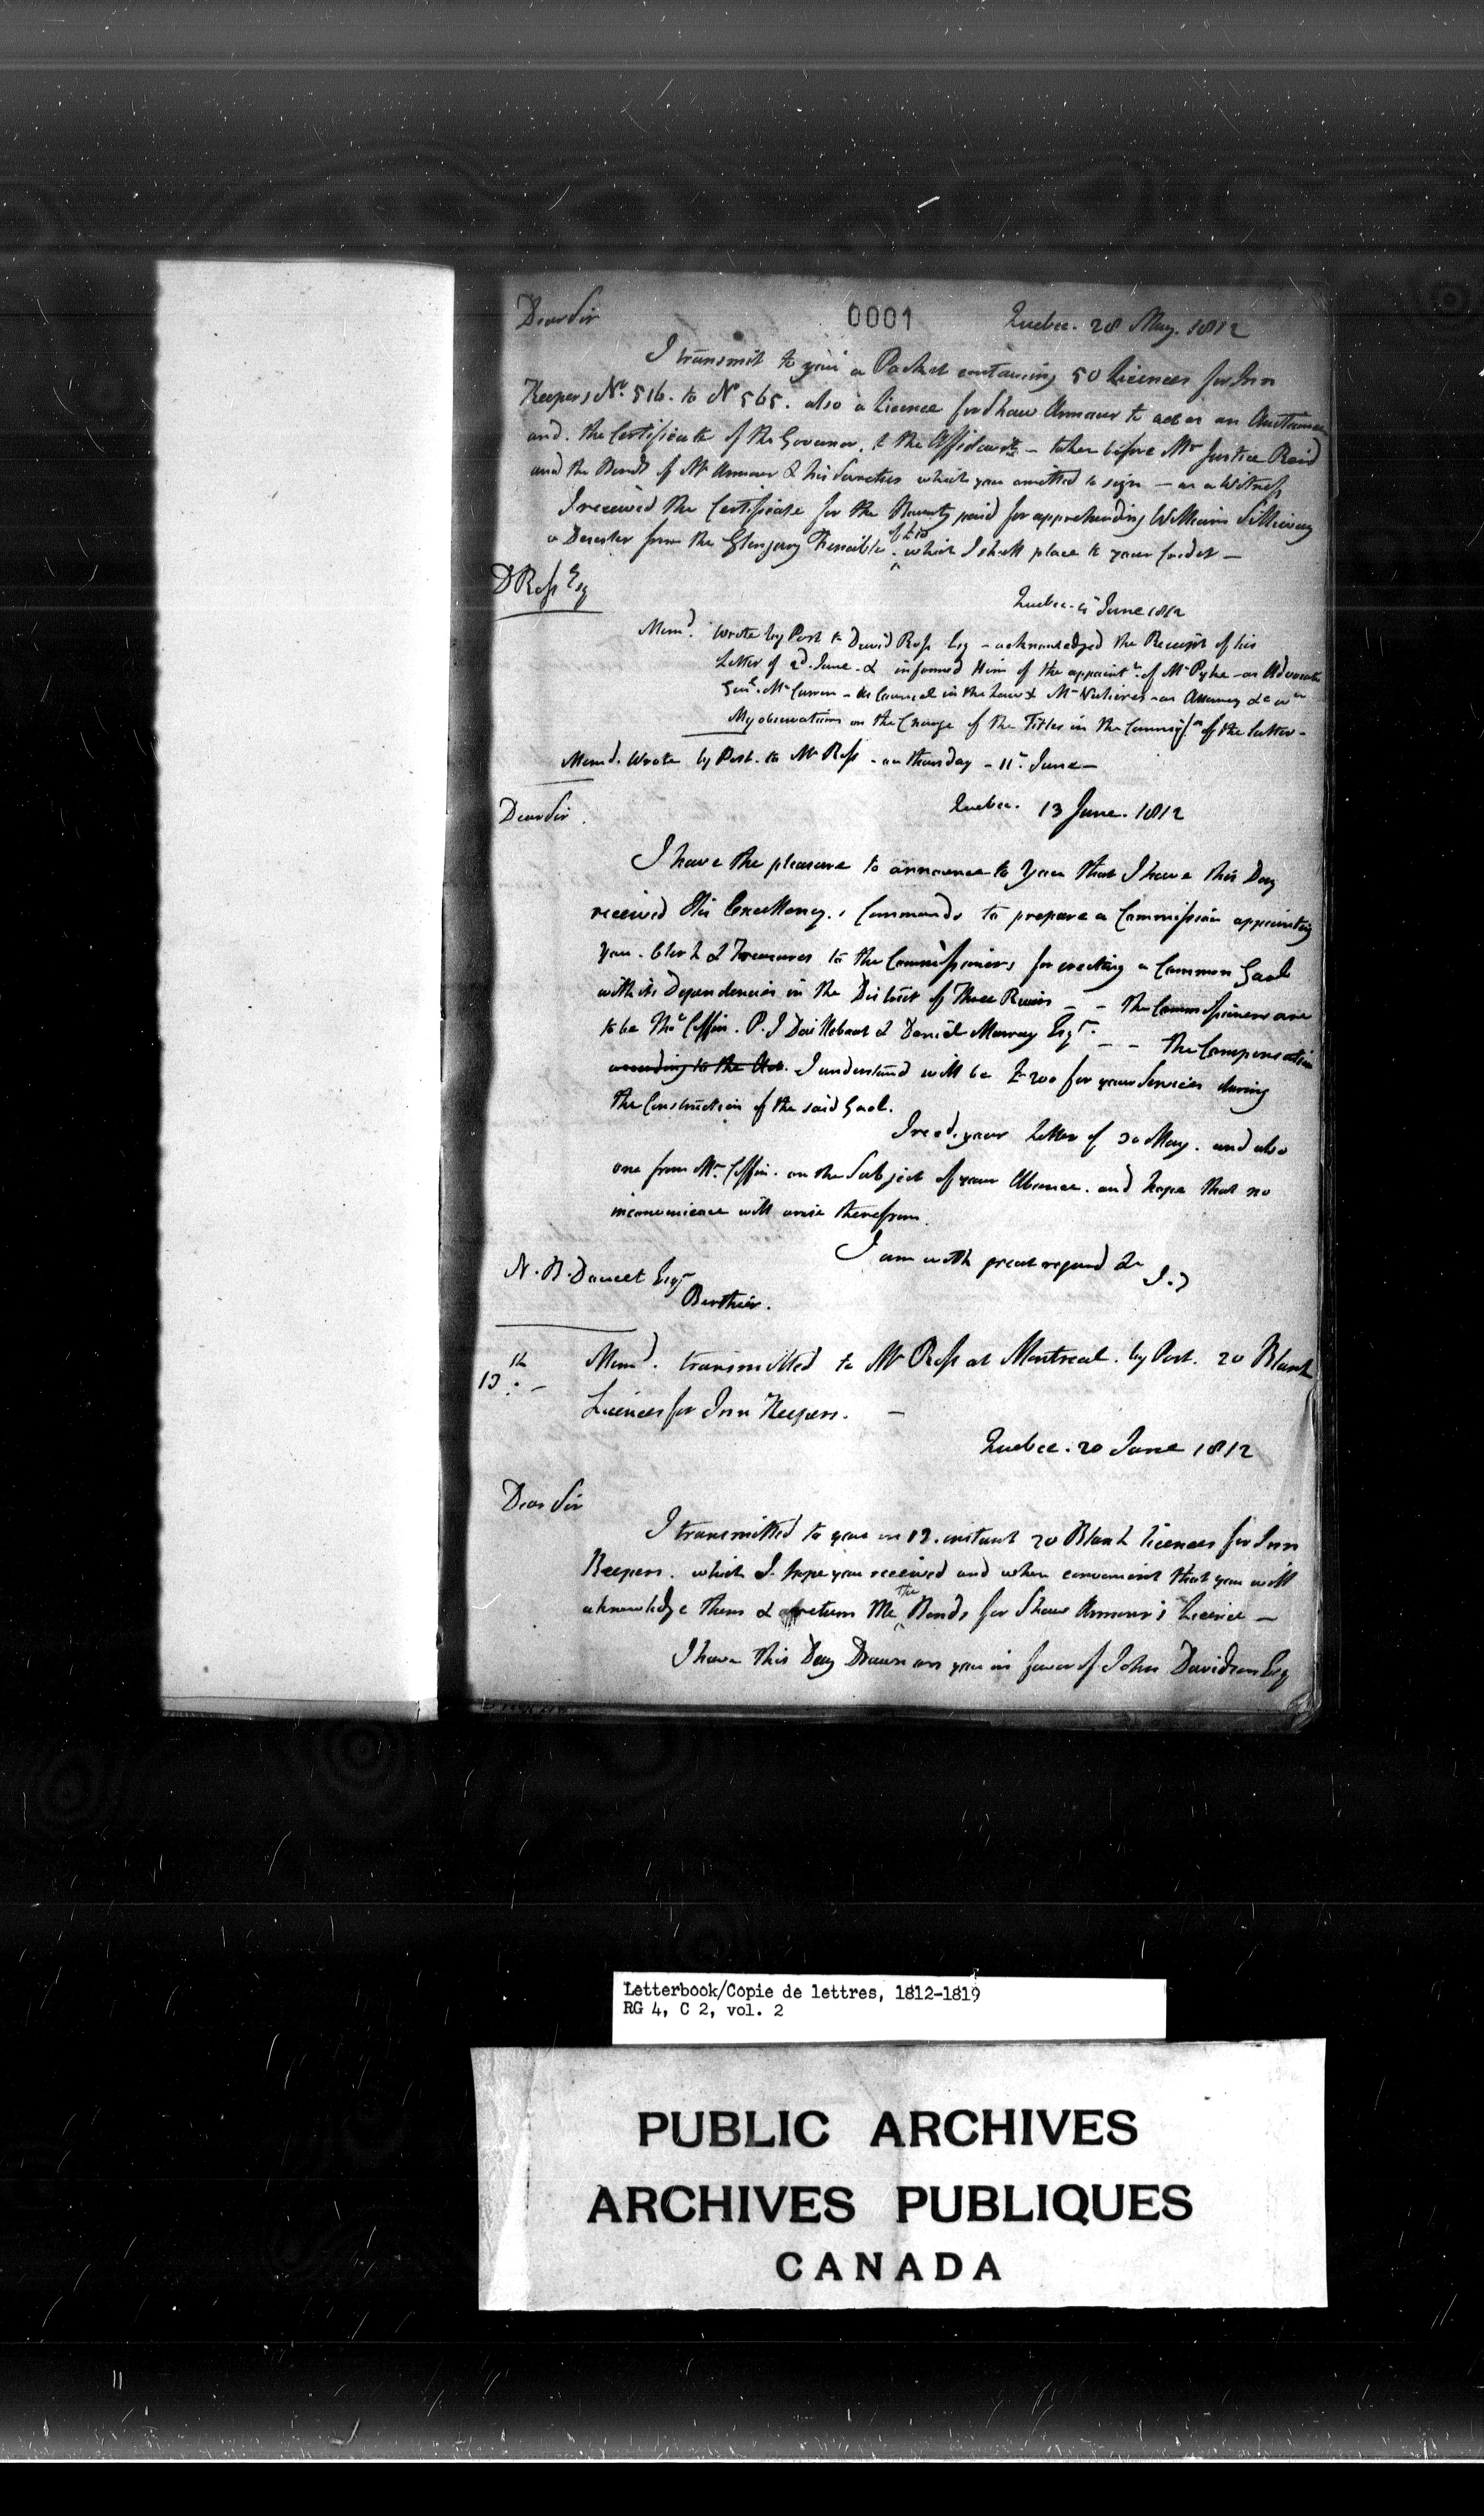 Dear Sir 0001 Quebec. 28 May. 1812
I transmit to you a Packet containing 50 Licences for Inn
Keepers No. 516. to No 565. also a Licence for Shaw Armour to act as an Auctioneer
and. the Certificate of the Governor. & the Affidavits - taken before Mr Justice Reid
and the Bonds of Mr Armour & his Sureties which you omitted to sign - as a Witness
I received the Certificate for the Bounty paid for apprehending William
a Deserter from the Glengary Fencible which I shall place to your Credit -
D Ross Esq
Quebec. 4 June 1812
Memd. Wrote by Post to David Ross Esq - acknowledged the Receipt of his
Letter of 2d. June - & informed Him of the appointt. of Mr Pyke - as Advocate
Genl. Mr - as Council in the Law & Mr - an Attorney &c
My observations on the Change of the Titles in the Commissn of the latter -
Memd. Wrote by Post. to Mr Ross - on thursday - 11th June -
Dear Sir Quebec. 13 June. 1812
I have the pleasure to announce to you that I have this Day
received His Excellency's Commands to prepare a Commission appointing
you. Clerk & Treasurer to the Commissioners for erecting a Common Gaol
with its Dependencies in the District of Three Rivers - - the Commissioners are
to be Thos Coffin. P. I Daillebout & Daniel Murray Esqr. - - the Compensation
according to the Act. I understand will be £200 for your Services during
the Construction of the said Gaol.
I recd. your Letter of 30 May. and also
one from Mr. Coffin. on the Subject of your Absence. and hope that no
inconvenience will arise therefrom.
I am with great regard &c
N. B. Doucet Esqr
Berthier.
13th - Memd. transmitted to Mr Ross at Montreal. by Post. 20 Blank
Licences for Inn Keepers. -
Quebec. 20 June 1812
Dear Sir
I transmitted to you on 13. instant 20 Blank licences for Inn
Keepers. which I hope you received and when convenient that you will
aknowledge them & return Me the Bonds for Shaw Armour's Licence -
I have this Day Drawn on you in favor of John Davidson Esq
Letterbook/Copie de lettres, 1812-1819
RG 4, C 2, vol. 2
PUBLIC ARCHIVES
ARCHIVES PUBLIQUES
CANADA